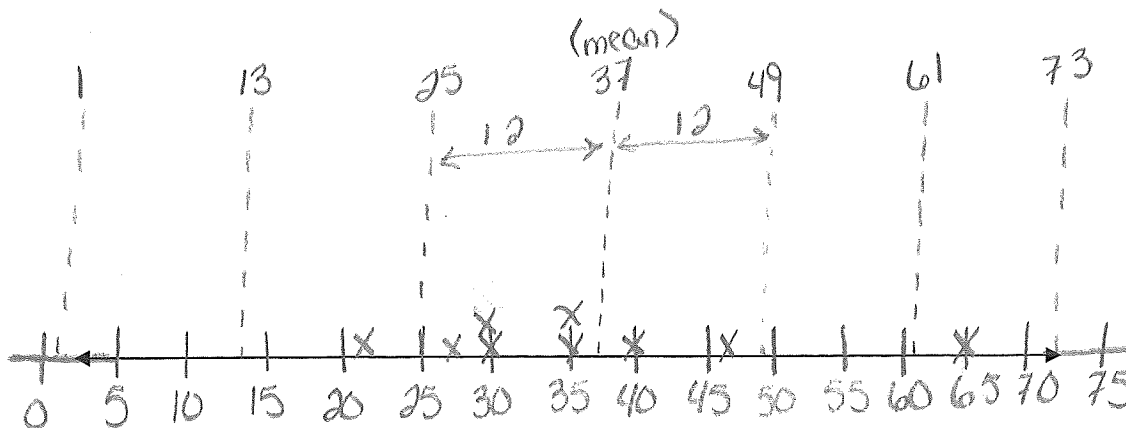 (mean)
1 13 25 37 49 61 73
12 12
x x
x x x x x x x
0 5 10 15 20 25 30 35 40 45 50 55 60 65 70 75